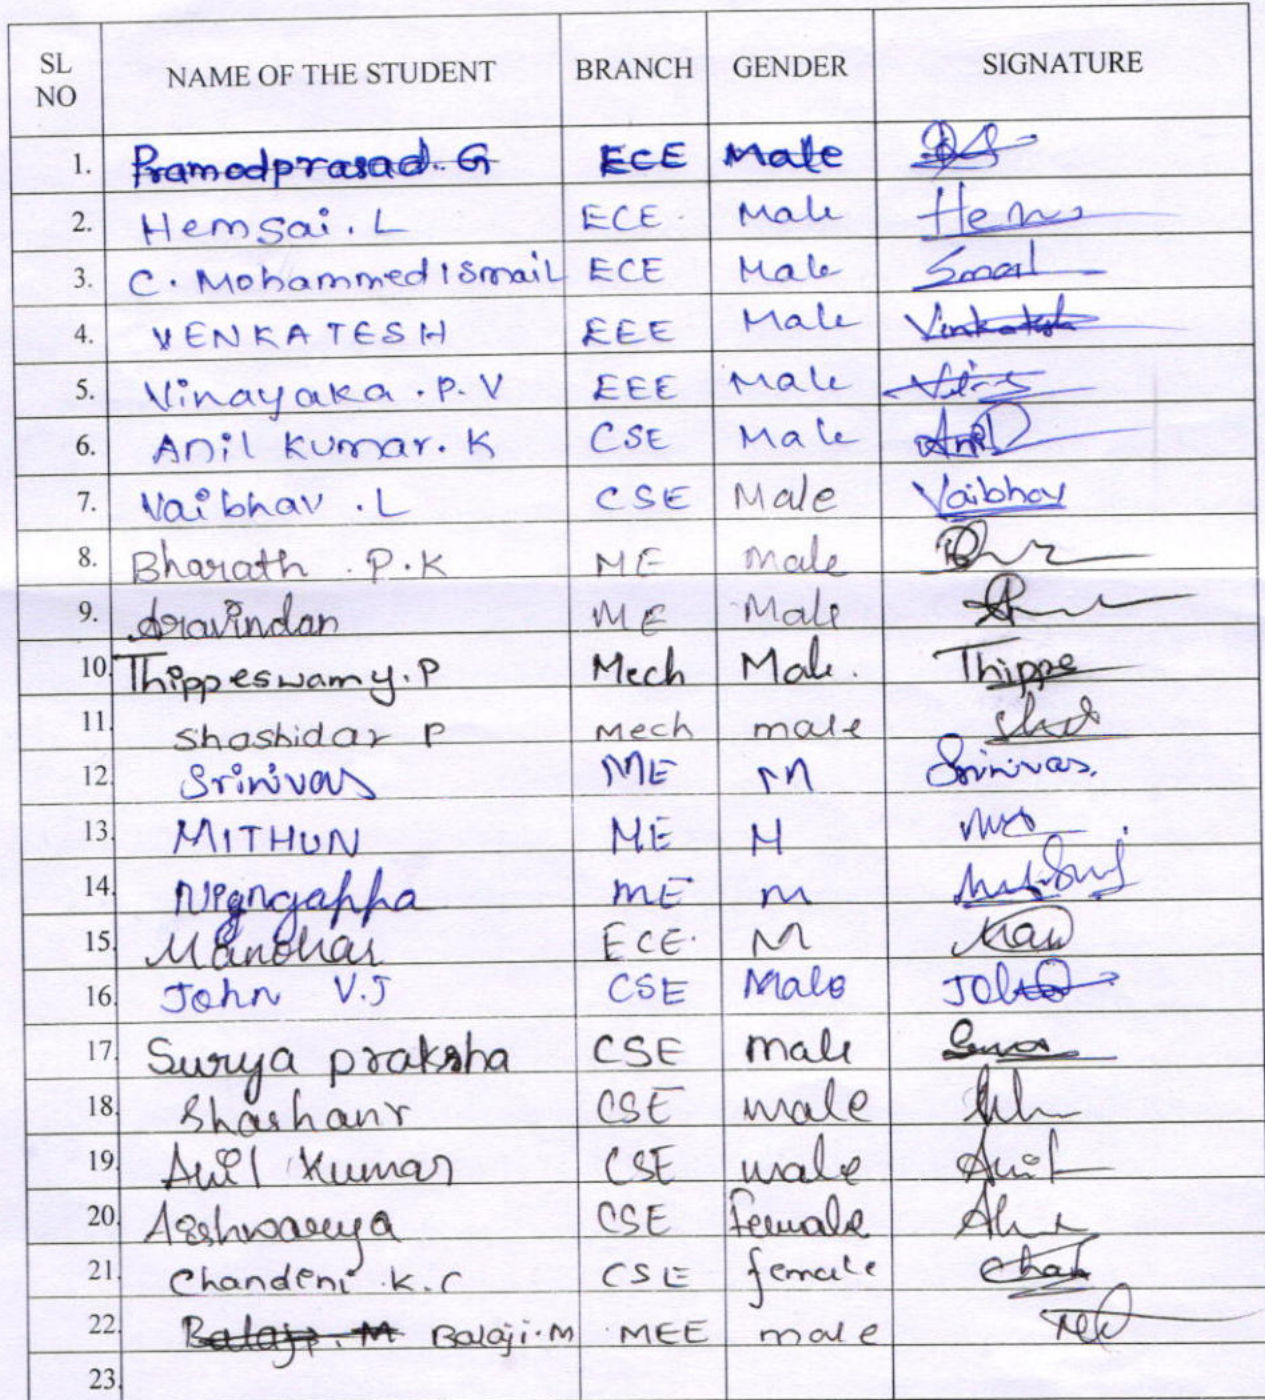 SL NO NAME OF THE STUDENT BRANCH GENDER SIGNATURE
1. Pramodprasad. G ECE Male
2. Hemsai. L ECE Male Hem
3. C. Mohammed Ismail ECE Male Smail
4. VENKATESH EEE Male Venkatesh
5. Vinayaka. P. V EEE Male
6. Anil Kumar. K CSE Male Anil
7. Vaibhav .L CSE Male Vaibhav
8. Bharath . P.K ME Male
9. Aravindan ME Male
10. Thippeswamy. P Mech Male. Thippe
11. Shashidar P Mech male
12. Srinivas ME M Srinivas.
13. MITHUN ME M
14. ME M
15. Manohar ECE. M
16. John V.J CSE Male
17. Surya praksha CSE male
18. CSE male
19. Anil Kumar CSE male Anil
20. CSE Female
21. Chandini K.C CSE female
22. Balaji. M Balaji.M MEE male
23.